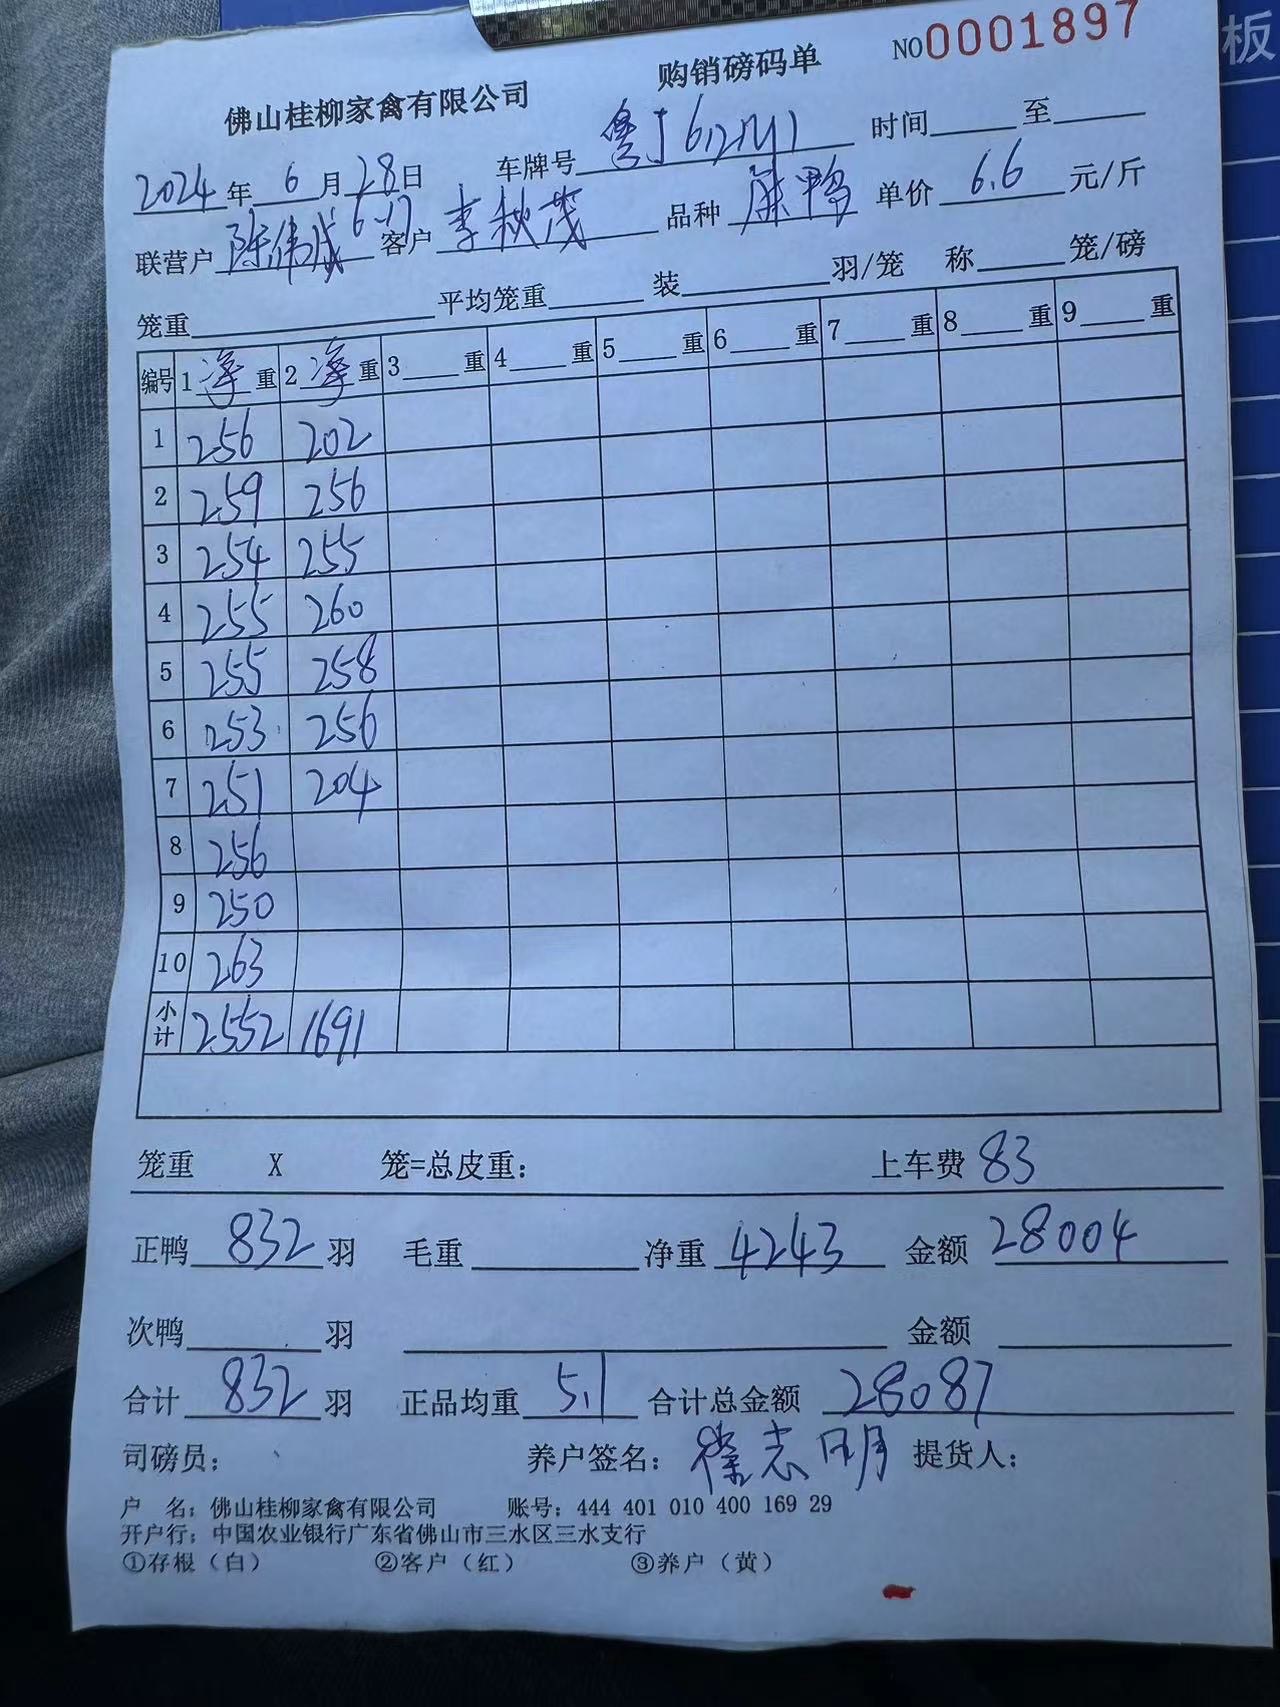 板
佛山桂柳家禽有限公司 购销磅码单 NO0001897
2024年 6 月 28日 车牌号 时间 至
联营户 陈伟成 6-17 客户 李秋茂 品种 麻鸭 单价 6.6 元/斤
笼重 平均笼重 装 羽/笼 称 笼/磅
编号 1 净 重 2 净 重 3 重 4 重 5 重 6 重 7 重 8 重 9 重
1 256 202
2 259 256
3 254 255
4 255 260
5 255 258
6 253 256
7 251 204
8 256
9 250
10 263
小计 2552 1691
笼重 X 笼=总皮重: 上车费 83
正鸭 832 羽 毛重 净重 4243 金额 28004
次鸭 羽 金额
合计 832 羽 正品均重 5.1 合计总金额 28087
司磅员: 养户签名: 徐志明 提货人:
户 名: 佛山桂柳家禽有限公司 账号: 444 401 010 400 169 29
开户行: 中国农业银行广东省佛山市三水区三水支行
①存根（白） ②客户（红） ③养户（黄）